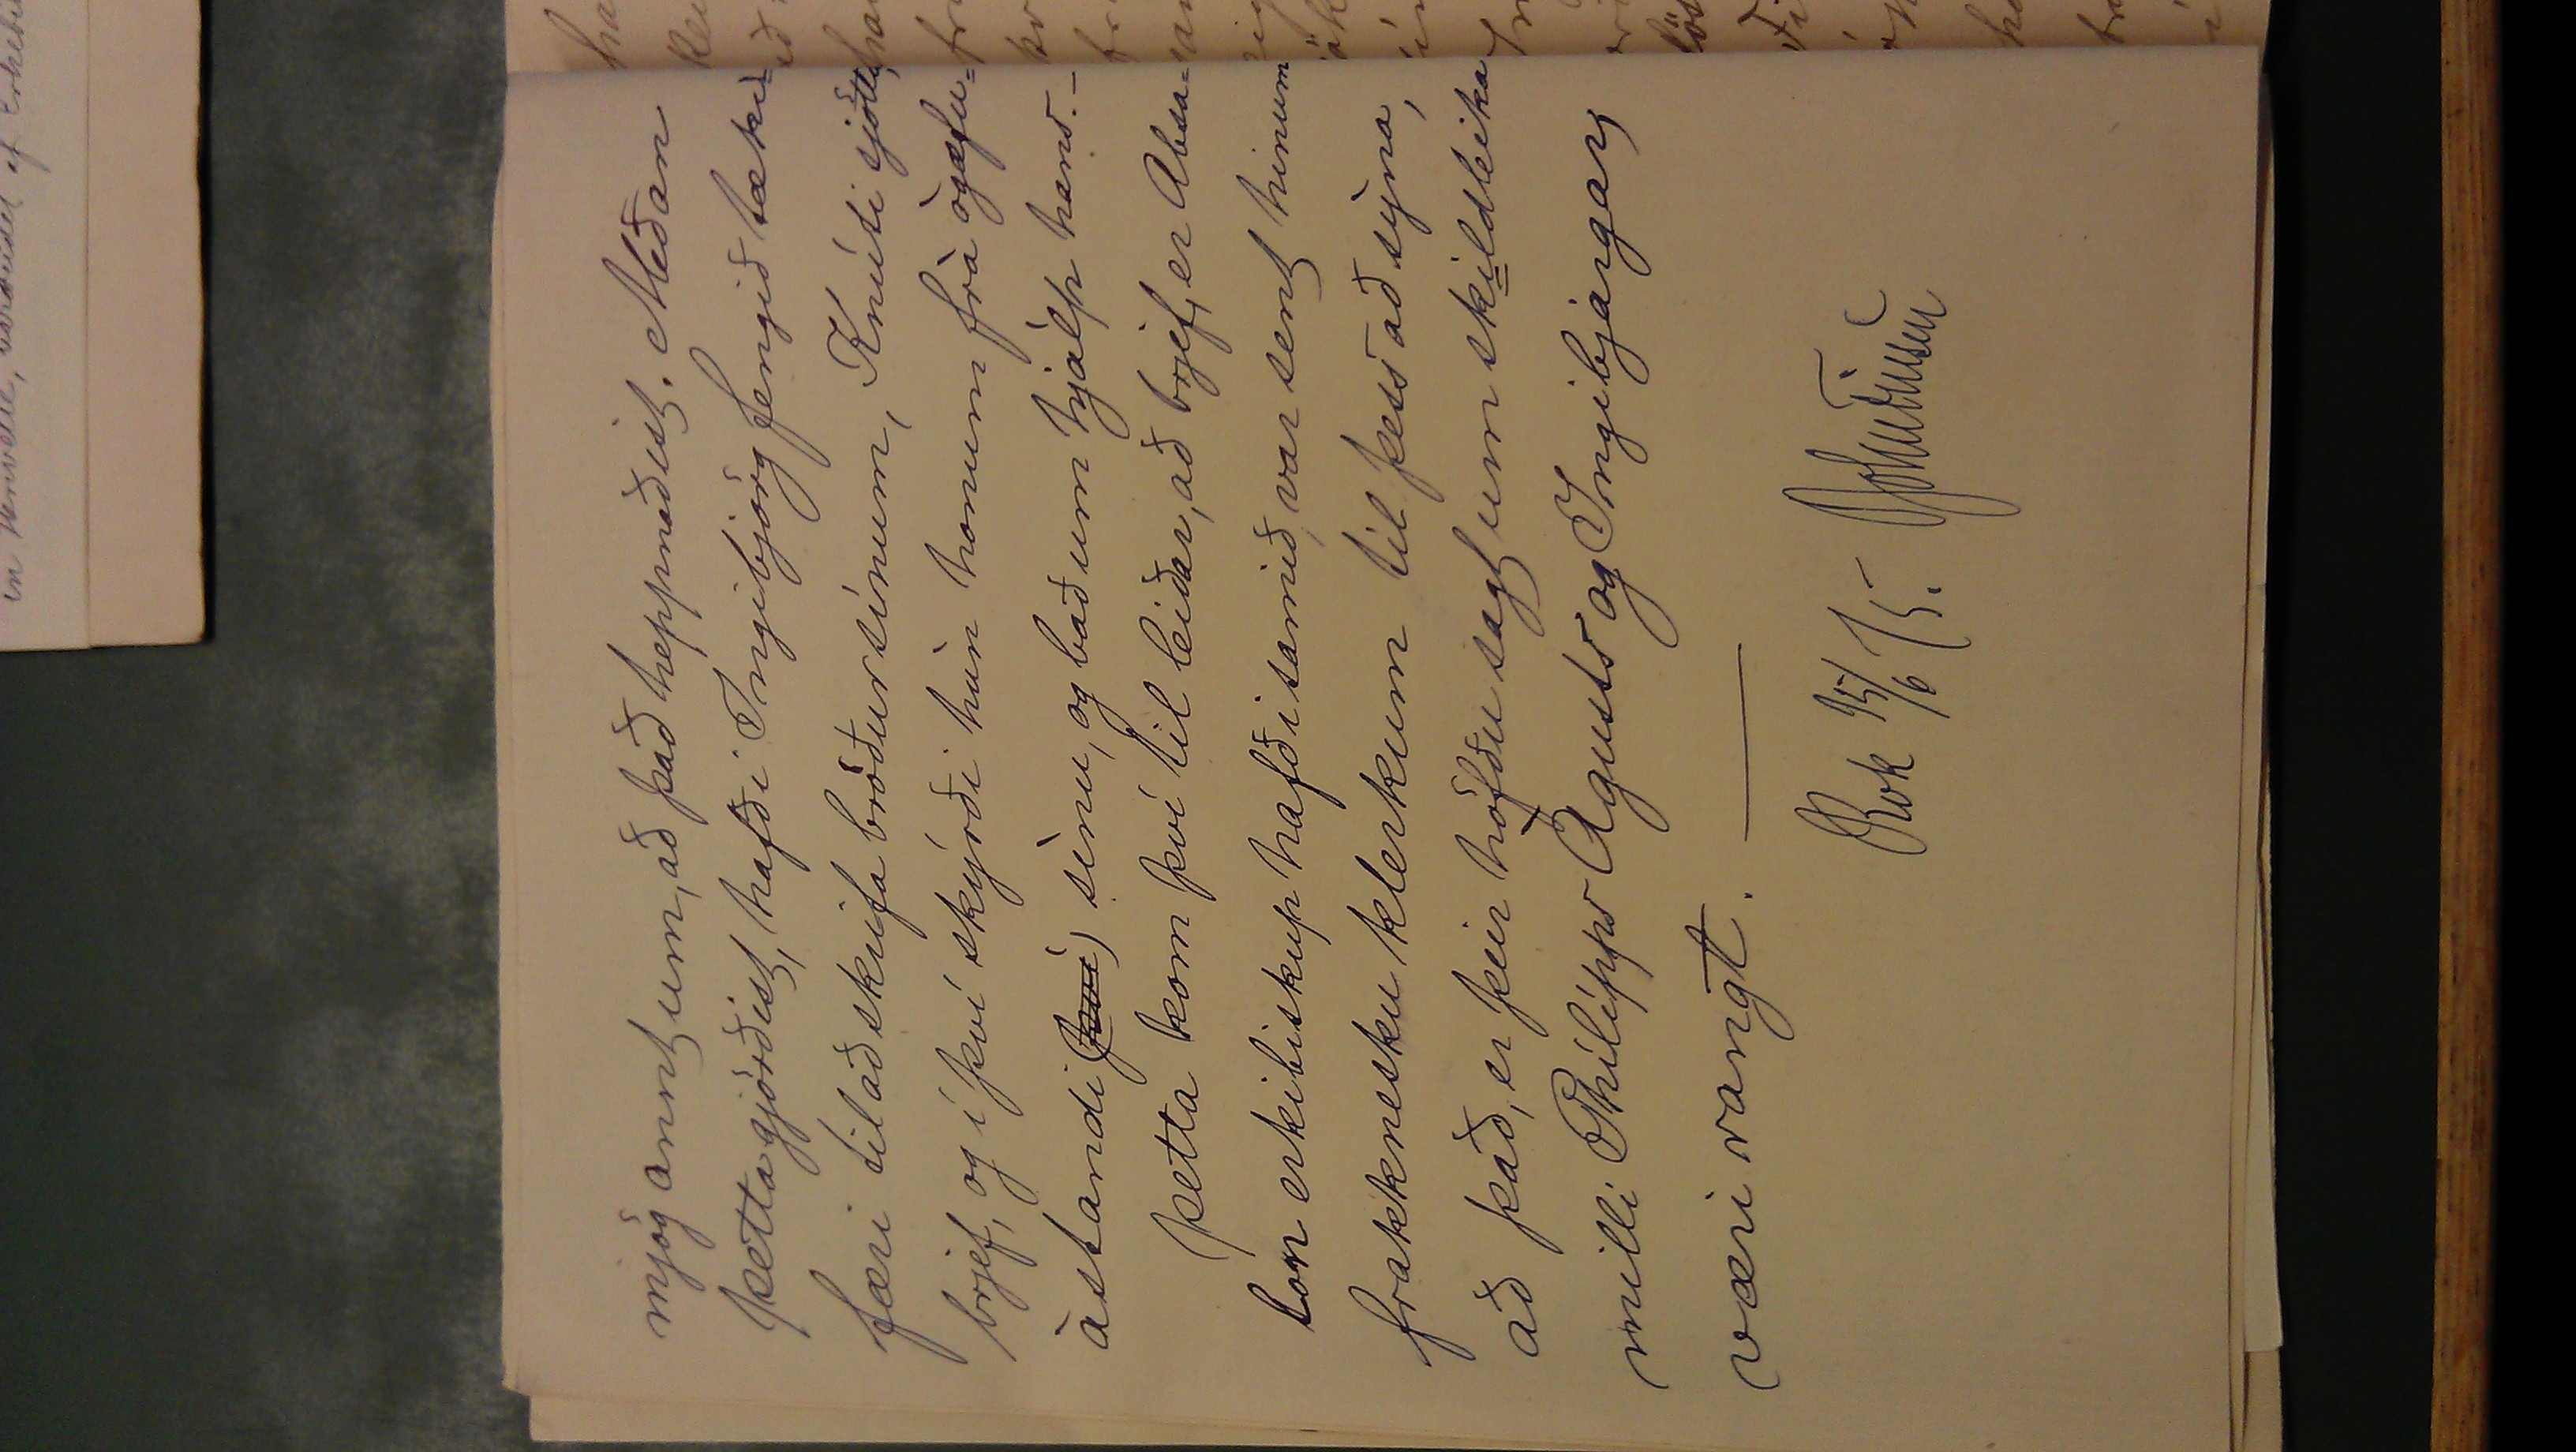 mjög annt um, að það heppnaðist. Meðan
þetta gjörðist, hafði Ingibjörg fengið tæki=
færi til að skrifa bróður sínum, Knúti sjötta,
brjef, og í því skýrði hún honum frá ógæfu=
ástandi sínu, og bað um hjálp hans.–
Þetta kom því til leiðar, að brjef, er Absa=
lon erkibiskup hafði samið, var sent hinum
frakknesku klerkum til þess að sýna,
að það, er þeir höfðu sagt um skildleika
milli Philipps Agusts og Ingibjargar
væri rangt.
Rvk